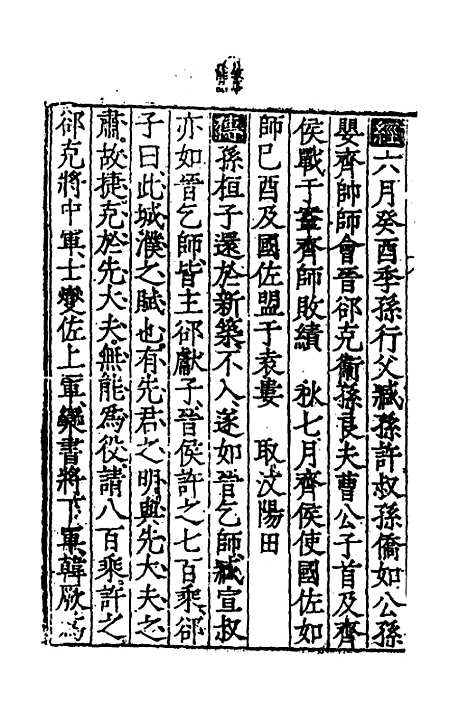 經六月癸酉季孫行父臧孫許叔孫僑如公孫
嬰齊帥師會晉郤克衞孫良夫曹公子首及齊
侯戰于鞌齊師敗績 秋七月齊侯使國佐如
師己酉及國佐盟于袁婁 取汶陽田
傳孫桓子還於新築不入遂如晉乞師臧宣叔
亦如晉乞師皆主郤獻子晉侯許之七百乘郤
子曰此城濮之賦也有先君之明與先大夫之
肅故捷克於先大夫無能爲役請八百乘許之
郤克將中軍士燮佐上軍欒書將下軍韓厥爲